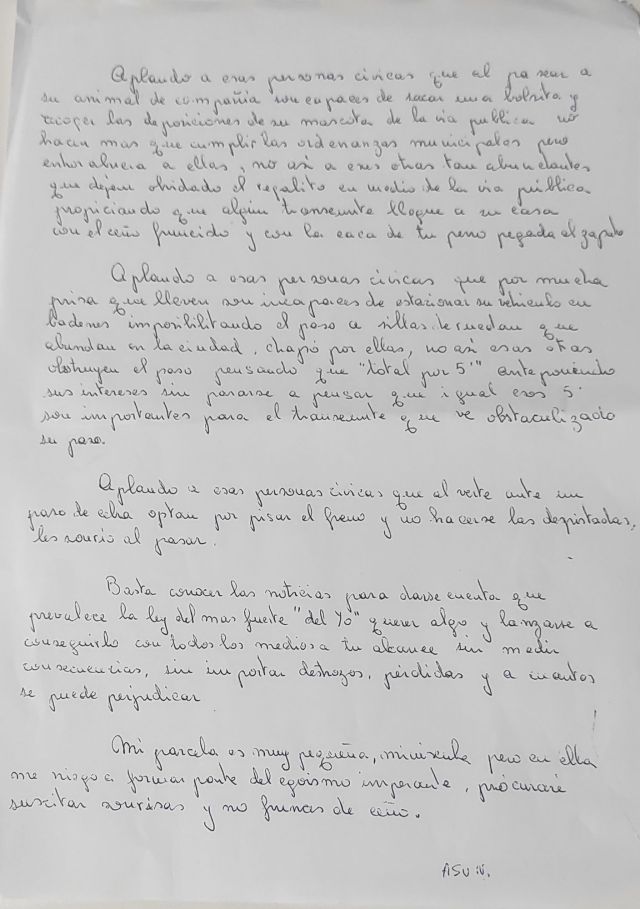 Aplaudo a esas personas cívicas que al pasear a
su animal de compañia son capaces de sacar una bolsita y
recoger las deposiciones de su mascota de la via publica no
hacen mas que cumplir las ordenanzas municipales pero
enhorabuena a ellas, no asi a esas otras tan abundantes
que dejan olvidado el regalito en medio de la via pública
propiciando que algún transeunte llegue a su casa
con el ceño fruncido y con la caca de tu perro pegada al zapato
Aplaudo a esas personas cívicas que por mucha
prisa que lleven son incapaces de estacionar su vehiculo en
badenes imposibilitando el paso a sillas de ruedan que
abundan en la ciudad, chapó por ellas, no asi esas otras
obstruyen el paso pensando que "total por 5'" anteponiendo
sus intereses sin pararse a pensar que igual esos 5'
son importantes para el transeunte que ve obstaculizado
su paso.
Aplaudo a esas personas cívicas que al verte ante un
paso de cebra optan por pisar el freno y no hacerse las despistadas,
les sonrio al pasar.
Basta conocer las noticias para darse cuenta que
prevalece la ley del mas fuerte "del Yo" querer algo y lanzarse a
conseguirlo con todos los medios a tu alcance sin medir
consecuencias, sin importar destrozos, pérdidas y a cuantos
se puede perjudicar
Mi parcela es muy pequeña, minúscula pero en ella
me niego a formar parte del egoismo imperante, procuraré
suscitar sonrisas y no frunces de ceño.
ASU N.